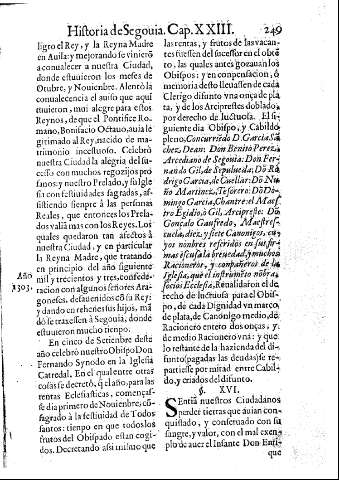 Historia de Segouia. Cap. XXIII. 249
ligro el Rey, y la Reyna Madre
en Auila: y mejorando se viniero
a conualecer a nuestra Ciudad,
donde estuuieron los meses de
Otubre, y Nouiẽbre. Alentò la
conualecencia el auiso que aqui
tuuieron, mui alegre para estos
Reynos, de que el Pontifice Ro-
mano, Bonifacio Octauo, auia le
gitimado al Rey, nacido de ma-
trimonio incestuoso. Celebrò
nuestra Ciudad la alegria del su-
cesso con muchos regozijos pro
fanos; y nuestro Prelado, y su Igle
sia con festiuidades sagradas, as-
sistiendo sienpre à las personas
Reales, que entonces los Prela-
dos valiã mas con los Reyes. Los
quales quedaron tan afectos à
nuestra Ciudad, y en particular
la Reyna Madre, que tratando
en principio del año siguiente
Año mil y trecientos y tres, confede-
1303. racion con algunos señores Ara-
goneses, desauenidos cõ su Rey:
y dando en rehenes sus hijos, mã
dò se traxessen à Segouia, donde
estuuieron mucho tienpo.
En cinco de Setienbre deste
año celebrò nuestro Obispo Don
Fernando Synodo en la Iglesia
Catredal. En el qual entre otras
cosas se decretò, q̃ el año, para las
rentas Eclesiasticas, començas-
se dia primero de Nouiẽbre, cõ-
sagrado à la festiuidad de Todos
santos: tienpo en que todos los
frutos del Obispado estan cogi-
dos. Decretando assimismo que
las rentas, y frutos de las vacan-
tes fuessen del sucessor en el obto,
las quales antes gozauan los
Obispos: y en conpensacion, ò
memoria desto lleuassen de cada
Clerigo difunto vna onça de pla
ta, y de los Arciprestes doblado,
por derecho de luctuosa. El si-
guiente dia Obispo, y Cabildo
pleno. Concurriẽdo D. Garcia Sã
chez, Dean: Don Benito Perez,
Arcediano de Segouia: Don Fer-
nando Gil, de Sepulueda: Dõ Ro
drigo Garcia, de Cuellar: Dõ Nu
ño Martinez, Tesorero: Dõ Do-
mingo Garcia, Chantre: el Maes
tro Egidio, ò Gil, Arcipreste: Dõ
Gonçalo Gaufredo, Maestres-
cuela, diez, y siete Canonigos, cu-
yos nonbres referidos en sus fir-
mas escusa la breuedad, y muchos
Racioneros, y conpañeros de la
Iglesia, que el instrumẽto nõbra,
Socios Ecclesiæ, Reualidaron el de-
recho de luctuosa para el Obis-
po, de cada Dignidad vn marco
de plata, de Canonigo medio, de
Racionero entero dos onças, y
de medio Racionero vna: y que
lo restante de la hazienda del di-
funto (pagadas las deudas) se re-
partiesse por mitad entre Cabil-
do, y criados del difunto.
§. XVI.
Sentia nuestros Ciudadanos
perder tierras que auian con-
quistado, y conseruado con su
sangre, y valor, con el mal exen-
plo de auer el Infante Don Enri-
que